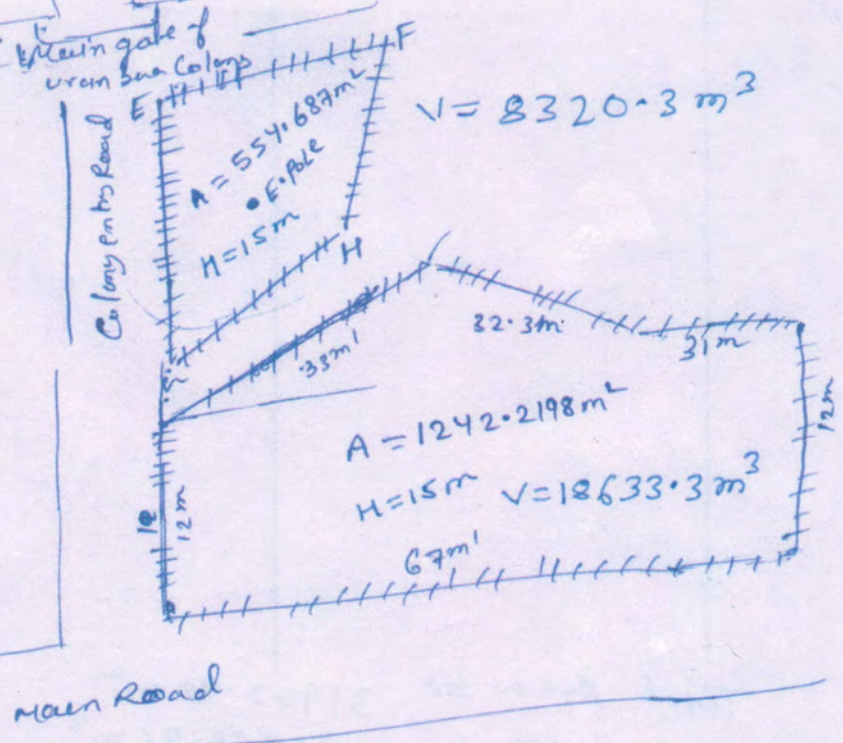 Main gate of
Colony
E
F
Colony entry Road
A = 554.687m²
E.Pole
H=15m
H
V= 8320.3 m³
33m'
32.3m.
31m
12m
A = 1242.2198m²
H=15m V=18633.3m³
12m
67m'
Main Road